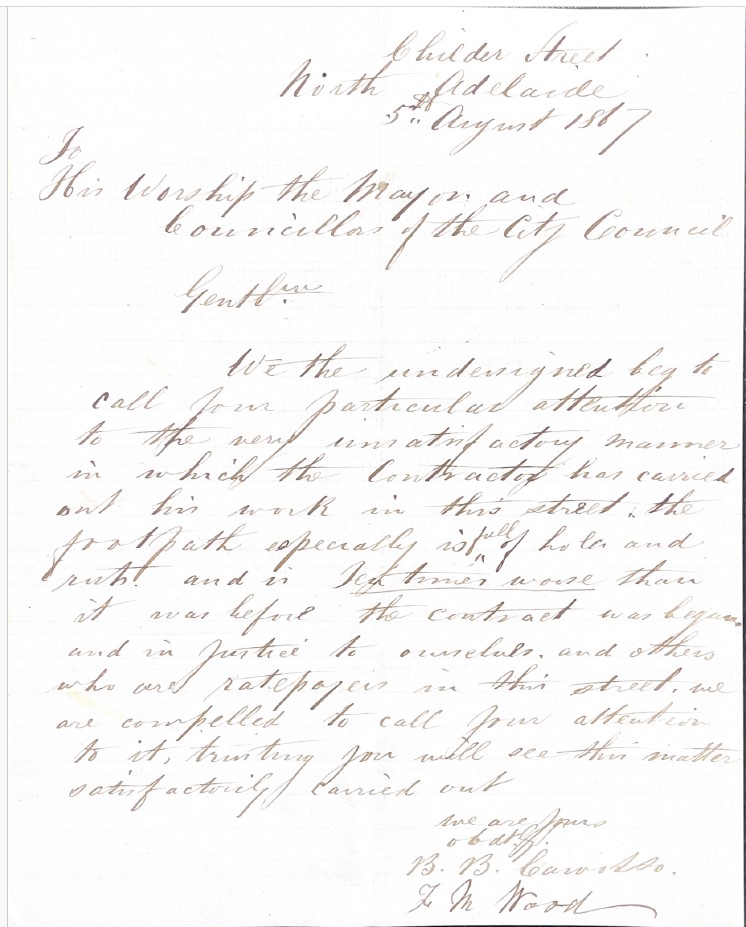 Childer Street
North Adelaide
5th August 1867
To
His Worship the Mayor and
Councillors of the City Council
Gentlmn
We the undersigned beg to
call your particular attention
to the very unsatisfactory manner
in which the Contractor has carried
out his work in this street, the
footpath especially is full of holes and
ruts. and is Ten times worse than
it was before the contract was began
and in Justice to ourselves. and others
who are ratepayers in this street. we
are compelled to call your attention
to it, trusting you will see this matter
satisfactorily carried out
we are yours
obdtly.
B. B.
F M Wood